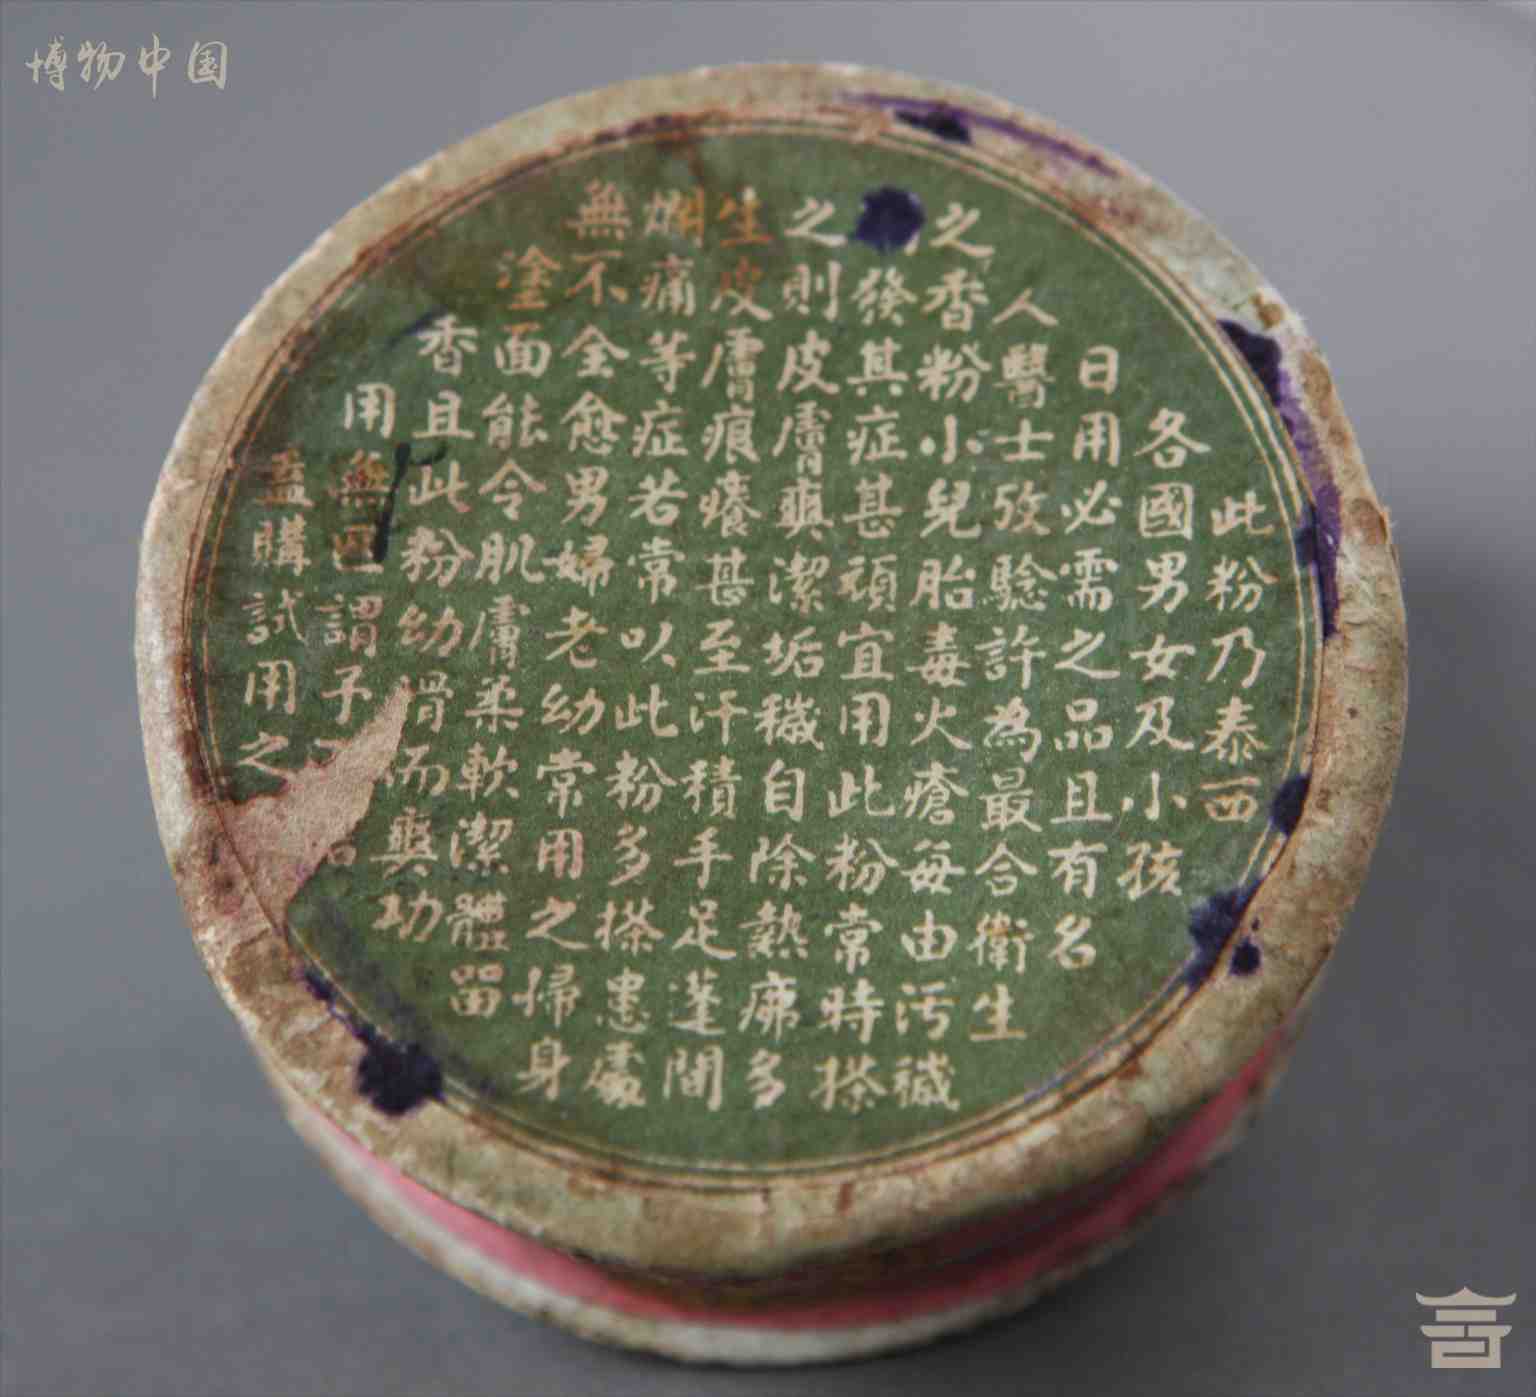 博物中国
此粉乃泰西
各國男女及小孩
日用必需之品且有名
人醫士攷驗許為最合衛生
之香粉小兒胎毒火瘡每由污穢
發其症甚頑宜用此粉常時搽
之則皮膚爽潔垢穢自除熱疿多
生皮膚痕癢甚至汗積手足蓬間
爛痛等症若常以此粉多搽患處
無不全愈男婦老幼常用之婦身
塗面能令肌膚柔軟潔體留
香且此粉幼滑而爽功
用無匹謂予
盍購試用之